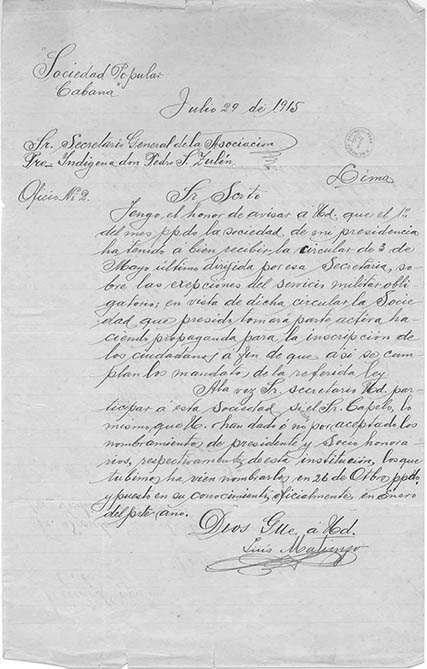 "Sociedad Popular
Cabana"
Julio 29 de 1915
Sr. Secretario General de la Asociacion
Pro-Indigena don Pedro S. Zulén,
Lima
Oficio Nº 2.
Sr Scrto
Tengo el honor de avisar á Ud. que el 1º
del mes ppdo la sociedad de mi presidencia
ha tenido á bien recibir la circular de 3 de
Mayo último dirijida por esa Secretaría, so-
bre las exepciones del servicio militar obli-
gatorio; en vista de dicha circular la Socie-
dad que presido tomará parte activa ha-
ciendo propaganda para la inscripcion de
los ciudadanos á fin de que asi se cum-
plan los mandatos de la referida ley
A la vez Sr. secretario Ud. par-
ticipar á esta Sociedad si el Sr. Capelo, lo
mismo que U. han dado ó no por aceptado los
nombramientos de presidente y Socio honora-
rios, respectivamente, de esta institucion, los que
tubimos ha vien nombrarlos en 26 de Otbre ppdo,
y puesto en su conocimiento, oficialmente en Enero
del pte año.
Dios Gue á Ud.
Luis